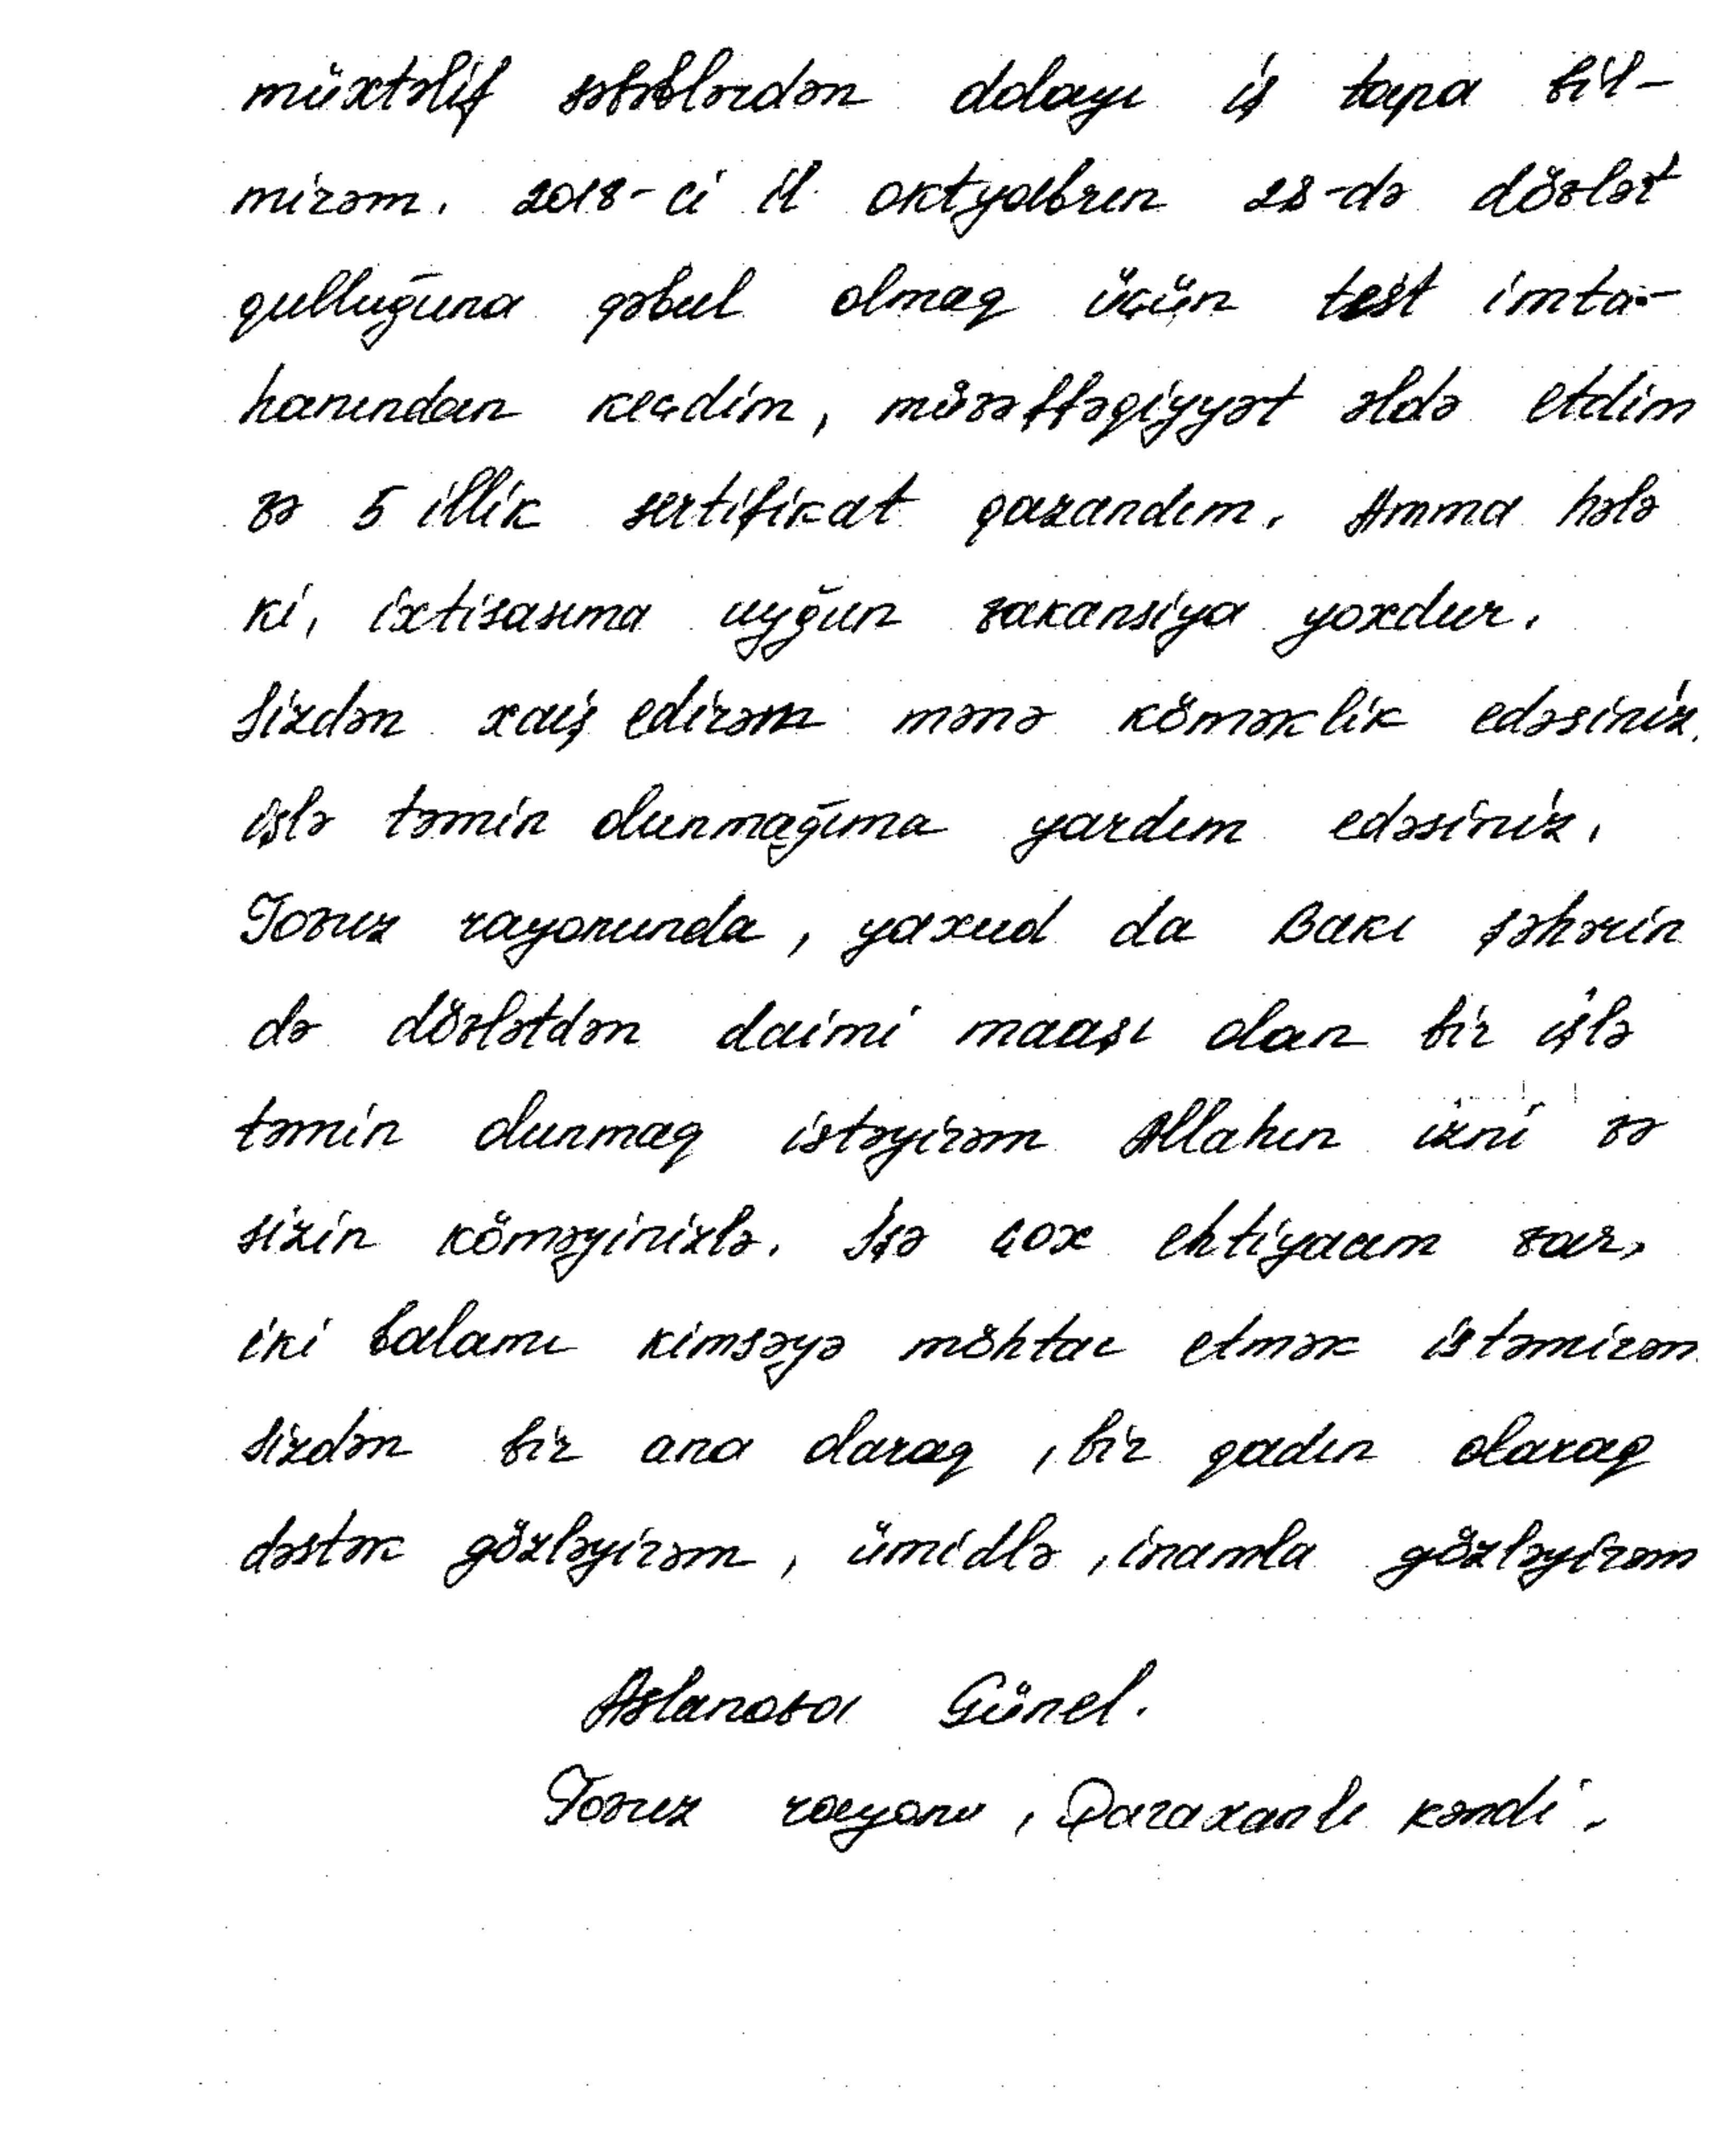 müxtəlif səbəblərdən dolayı iş tapa bil-
mirəm. 2018-ci il oktyabrın 28-də dövlət
qulluğuna qəbul olmaq üçün test imta-
hanından keçdim, müvəffəqiyyət əldə etdim
və 5 illik sertifikat qazandım. Amma hələ
ki, ixtisasıma uyğun vakansiya yoxdur.
Sizdən xaiş edirəm mənə köməklik edəsiniz,
işlə təmin olunmağıma yardım edəsiniz.
Tovuz rayonunda, yaxud da Bakı şəhərin
də dövlətdən daimi maaşı olan bir işlə
təmin olunmaq istəyirəm Allahın izni və
sizin köməyinizlə. İşə çox ehtiyacım var,
iki balamı kimsəyə möhtac etmək istəmirəm.
Sizdən bir ana olaraq, bir qadın olaraq
dəstək gözləyirəm, ümidlə, inamla gözləyirəm
Aslanova Günel.
Tovuz rayonu, Qaraxanlı kəndi.